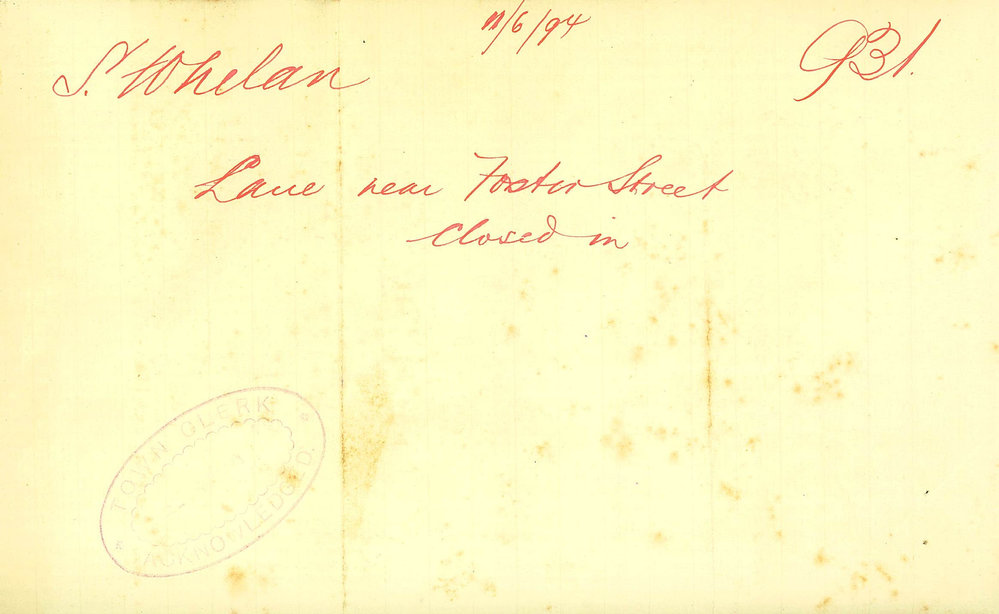 11/6/94
S. Whelan
931.
Lane near Foster Street
closed in
TOWN CLERK
ACKNOWLEDGED.